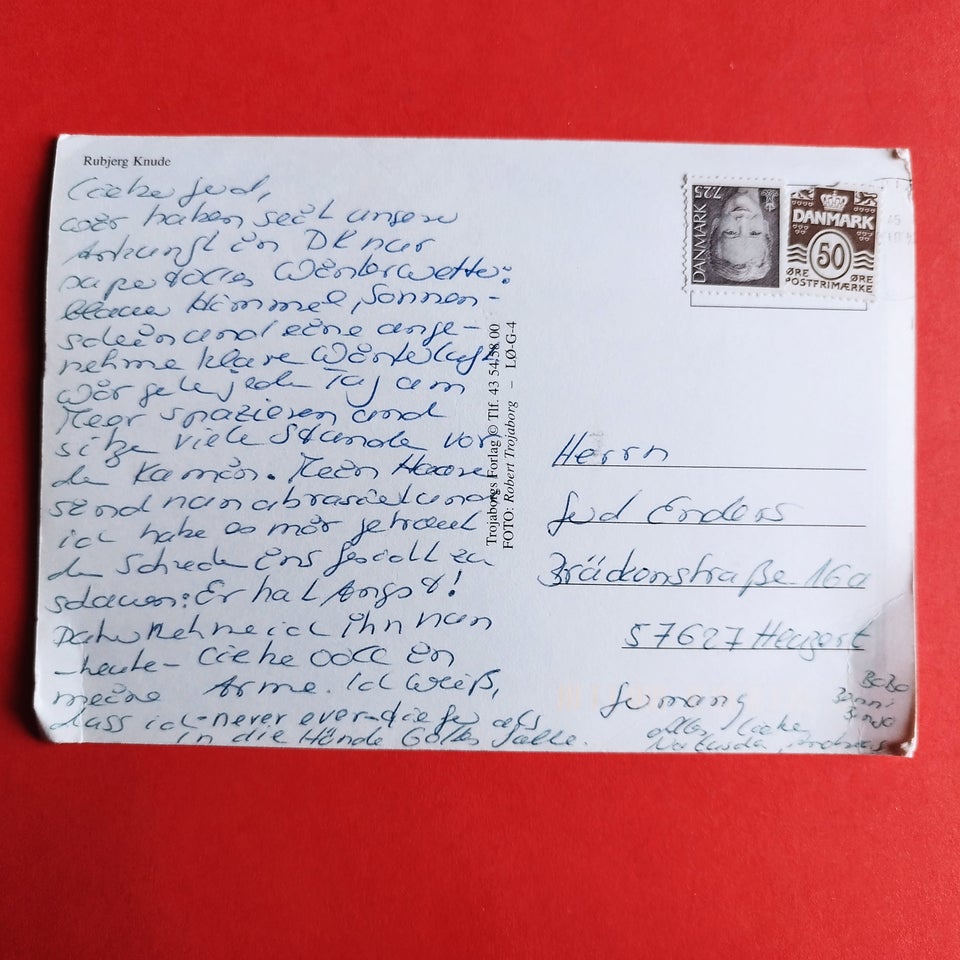 Rubjerg Knude
Liebe Jud,
wir haben seit unsere
Ankunft in DK nur
super tolles Winterwetter:
blauer Himmel, Sonnen-
schein und eine ange-
nehme klare Winterluft.
Wir gehen jeden Tag am
Meer spazieren und
sitzen viele Stunden vor
dem Kamin. Meine Haare
sind nun abrasiert und
ich habe es mir getraut
dem Schreck ins Gesicht zu
schauen: Er hat Angst!
Daher nehme ich ihn nun
-heute- liebevoll in
meine Arme. Ich weiß,
dass ich -never ever- tiefer als
in die Hände Gottes falle.
Trojaborgs Forlag © Tlf. 43 54 58 00
FOTO: Robert Trojaborg – LØ-G-4
DANMARK 7.25
DANMARK
50
ØRE ØRE
POSTFRIMÆRKE
Herrn
Jud Enders
16a
57627
Germany
alles Liebe
BoBo